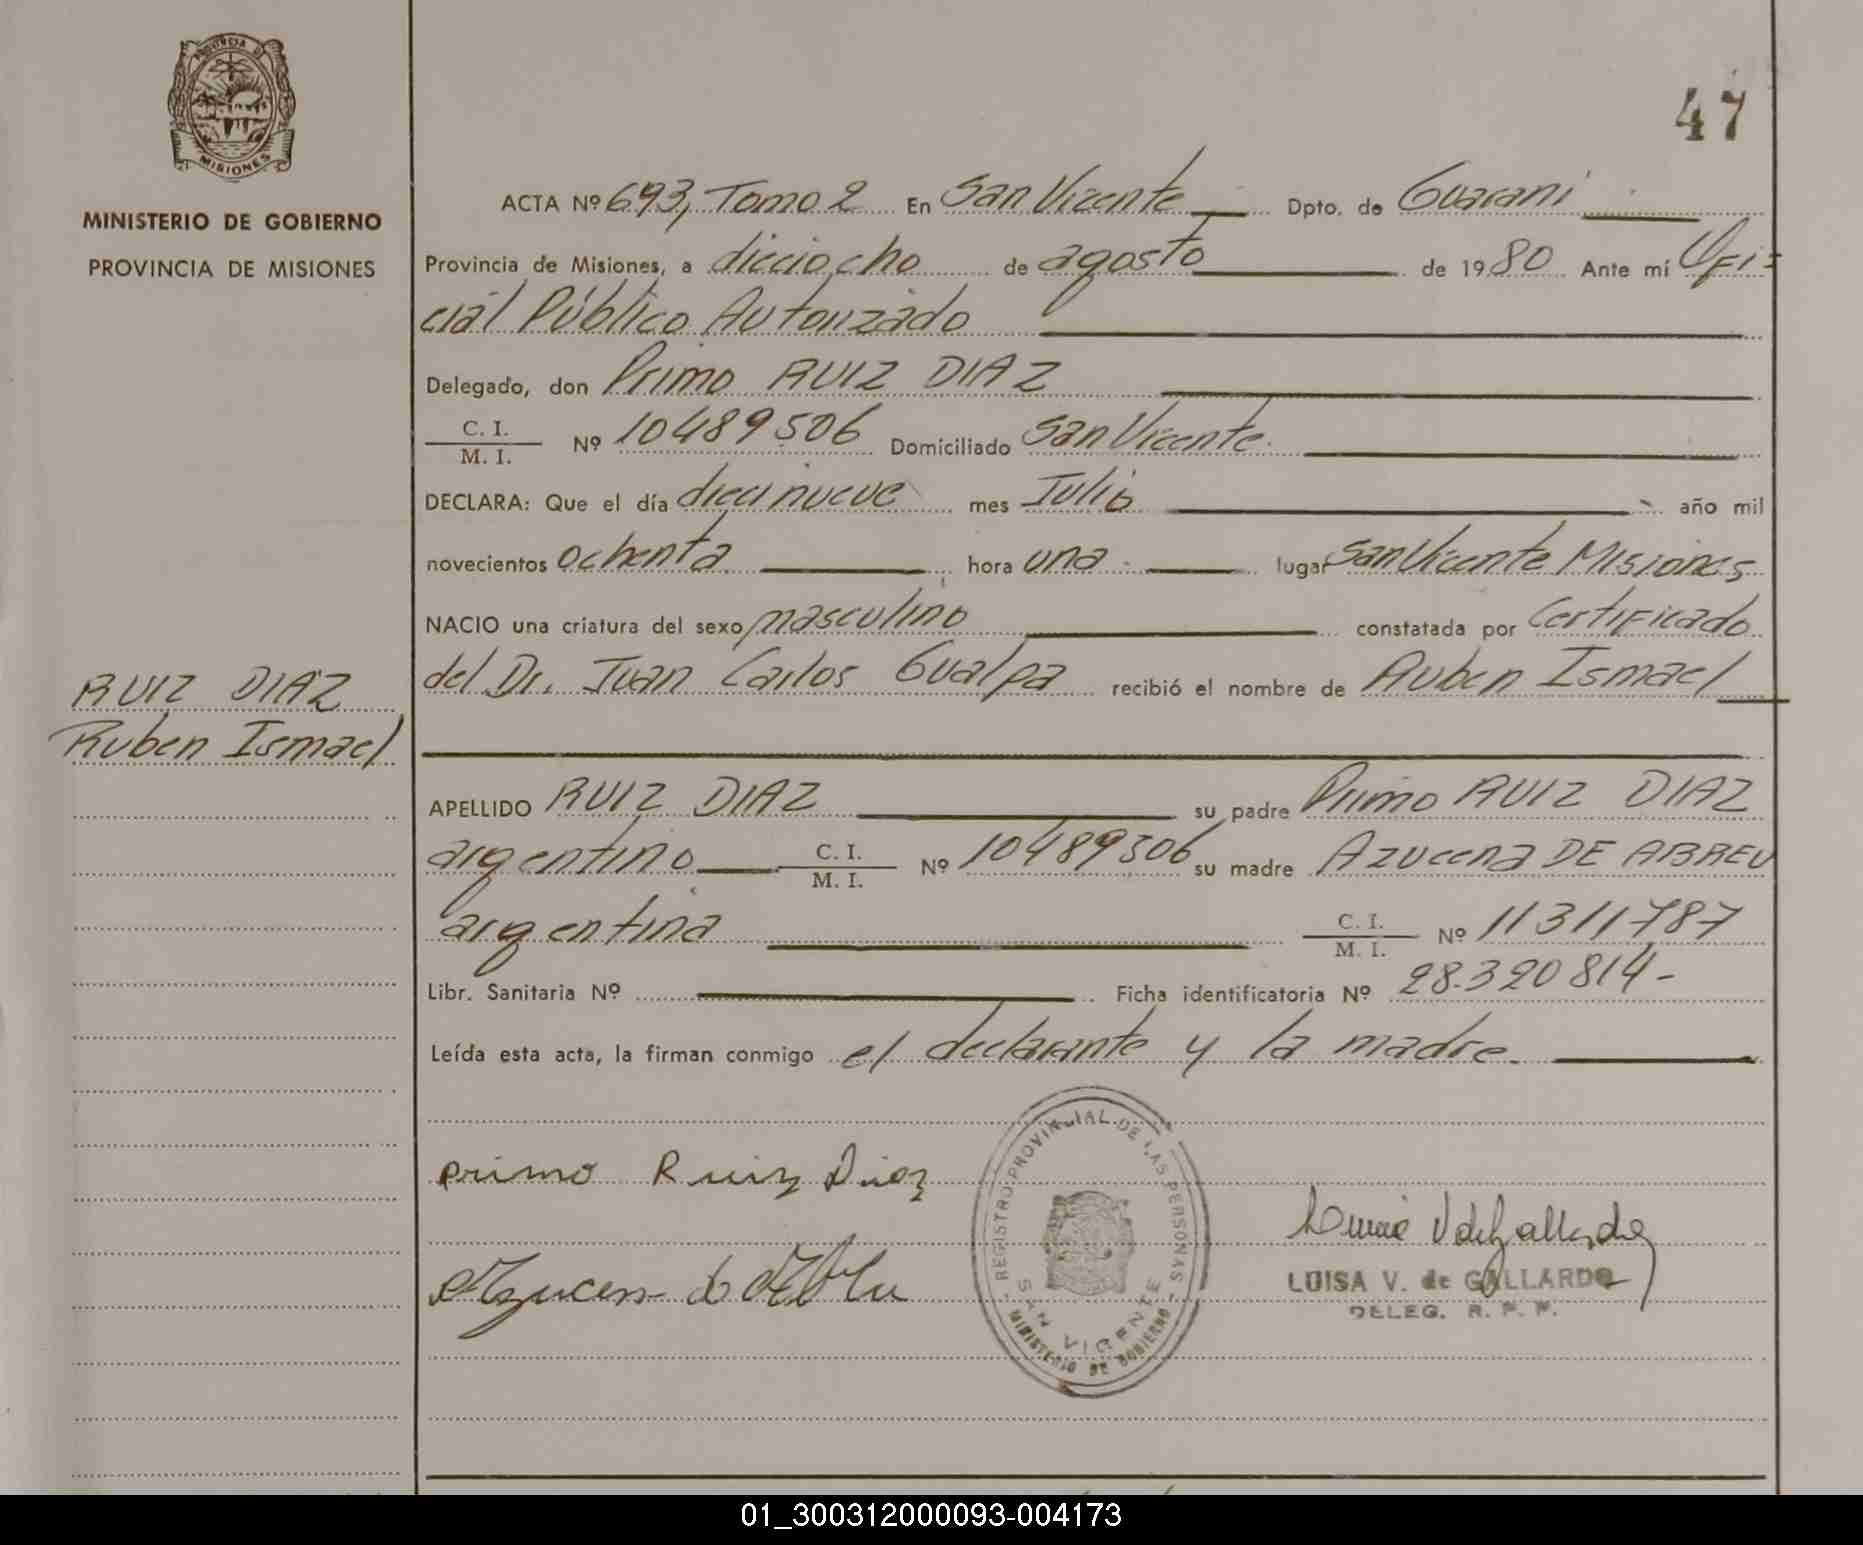 PROVINCIA DE
MISIONES
MINISTERIO DE GOBIERNO
PROVINCIA DE MISIONES
47
ACTA Nº 693, Tomo 2 En San Vicente Dpto. de Guaraní
Provincia de Misiones, a dieciocho de agosto de 1980 Ante mí Ofi=
cial Público Autorizado
Delegado, don Primo RUIZ DIAZ
C. I.
M. I. Nº 10489506 Domiciliado San Vicente
DECLARA: Que el día diecinueve mes Julio año mil
novecientos ochenta hora una lugar San Vicente Misiones
NACIO una criatura del sexo masculino constatada por Certificado
del Dr. Juan Carlos Gualpa recibió el nombre de Ruben Ismael
RUIZ DIAZ
Ruben Ismael
APELLIDO RUIZ DIAZ su padre Primo RUIZ DIAZ
argentino C. I.
M. I. Nº 10489506 su madre Azucena DE ABREU
argentina C. I.
M. I. Nº 11311787
Libr. Sanitaria Nº Ficha identificatoria Nº 28.320814-
Leída esta acta, la firman conmigo el declarante y la madre.
primo Ruiz Diaz
REGISTRO PROVINCIAL DE LAS PERSONAS
SAN VICENTE
MINISTERIO DE GOBIERNO
LUISA V. de GALLARDO
DELEG. R. P. P.
01_300312000093-004173